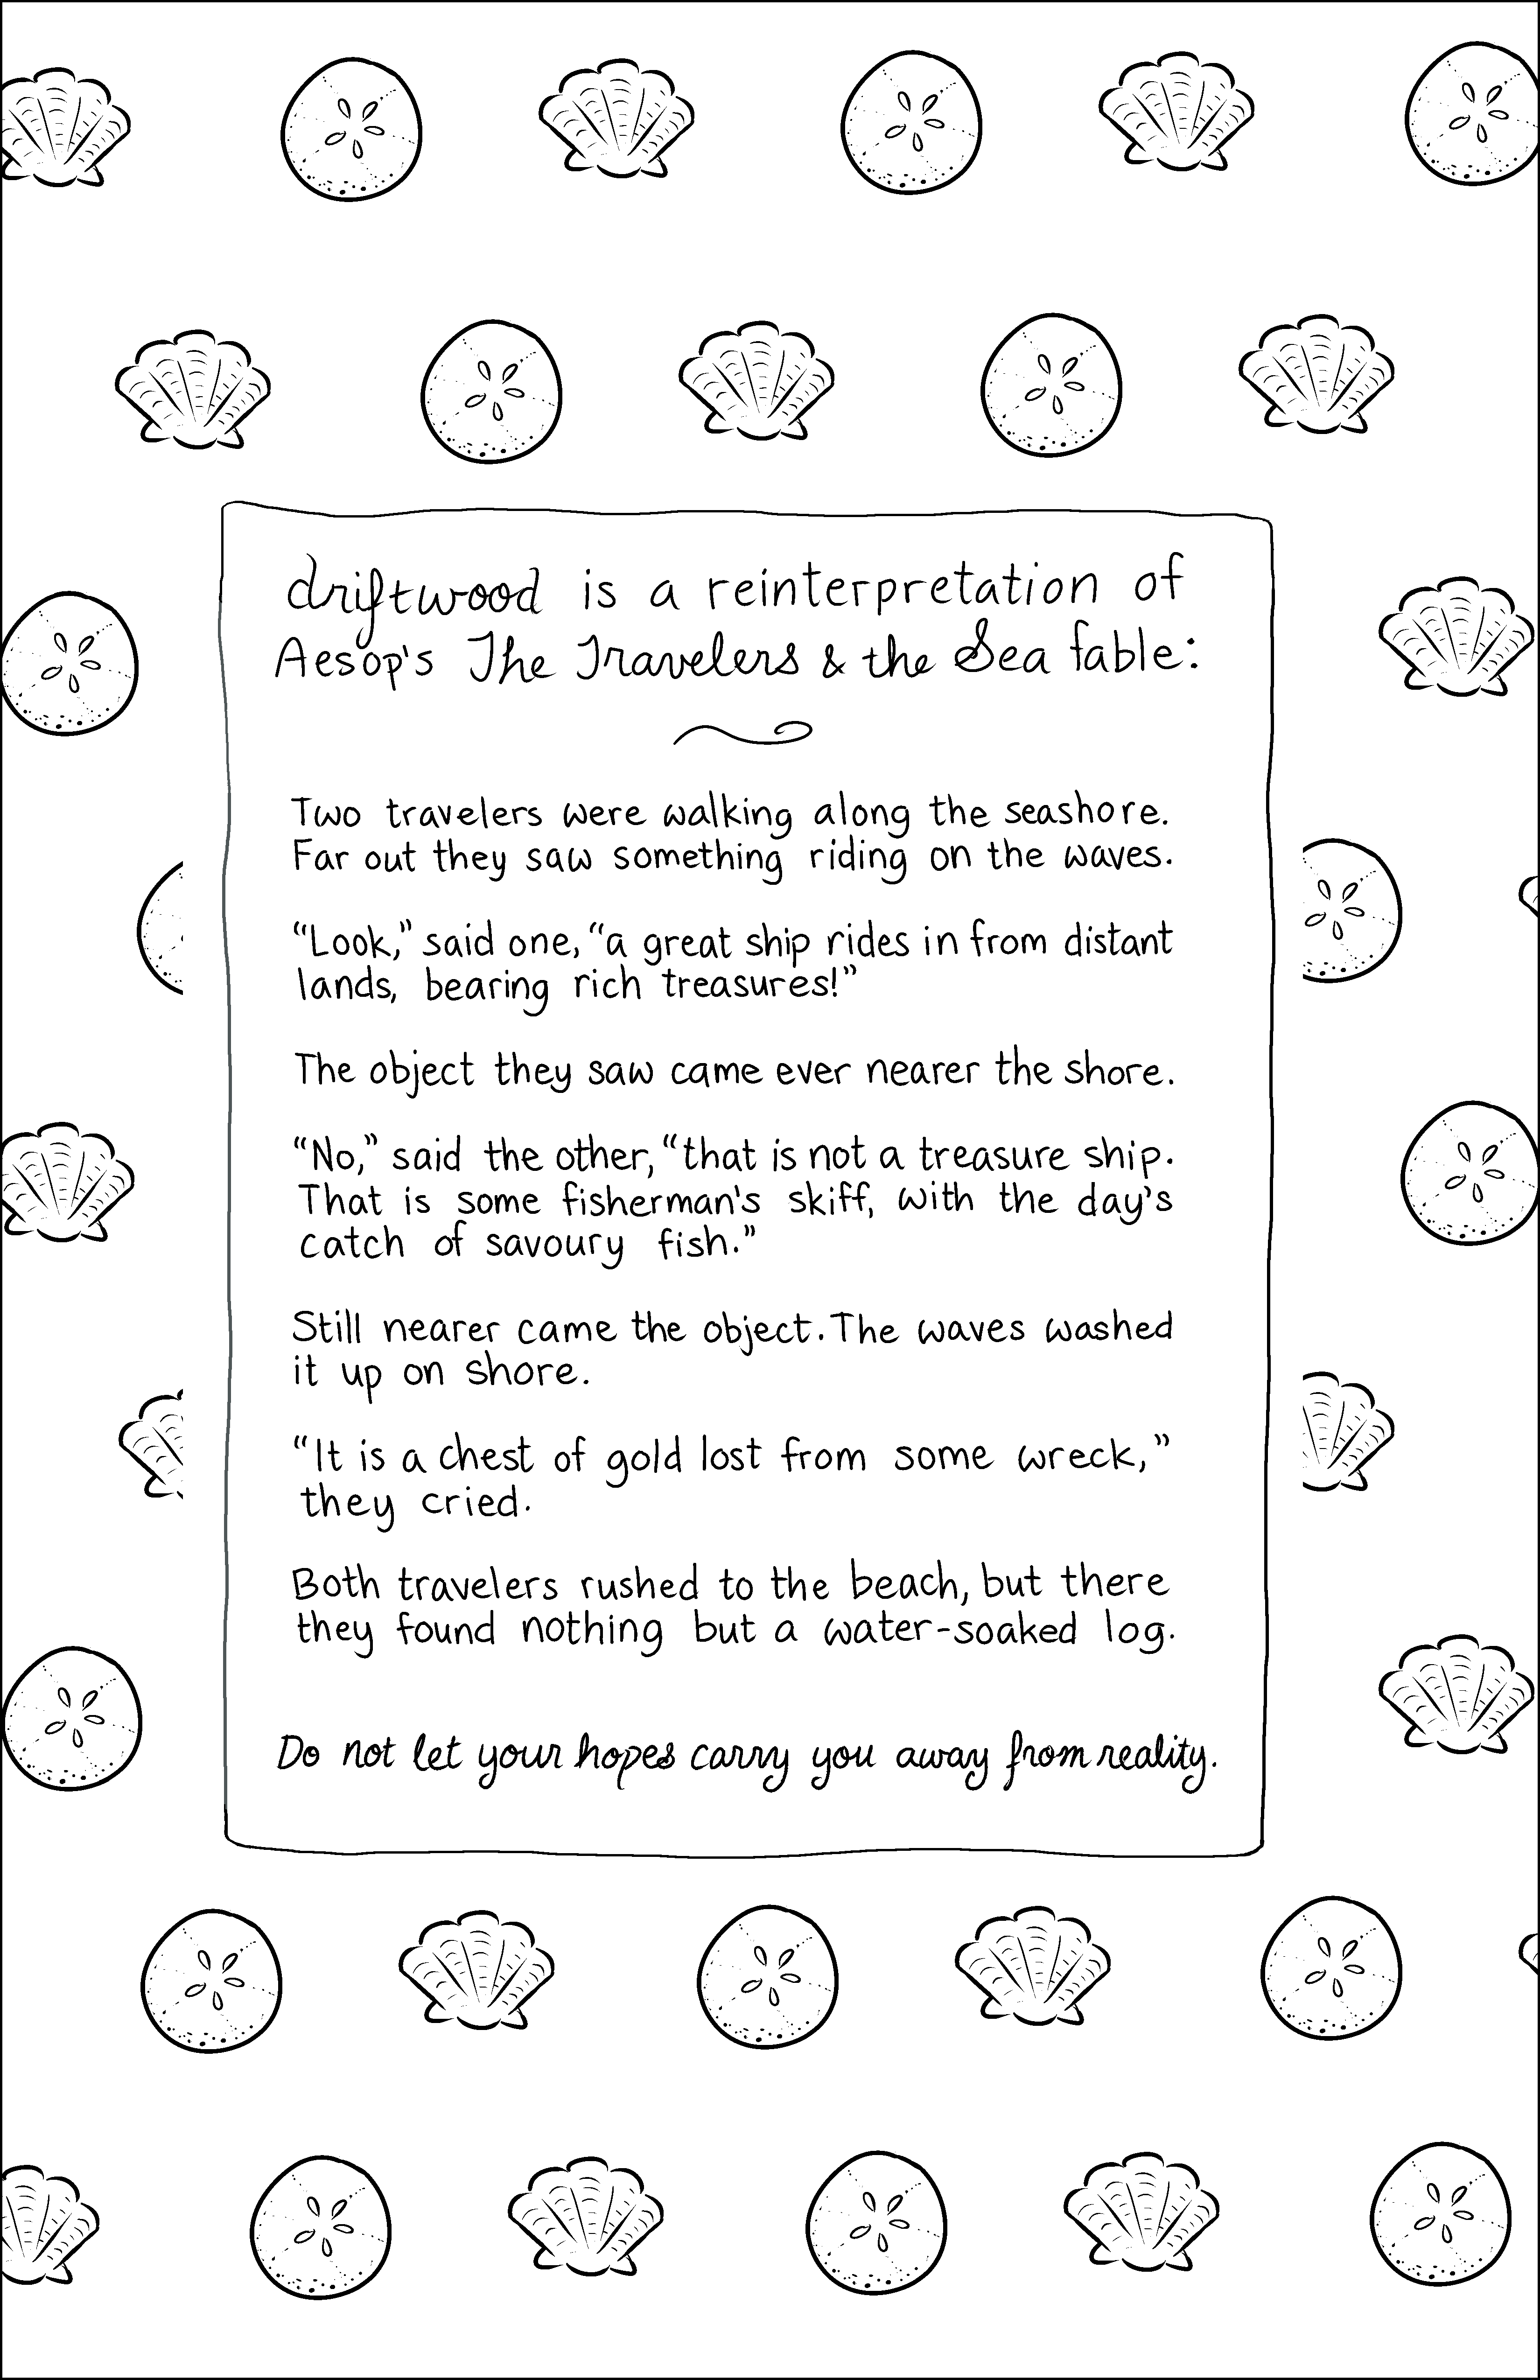 driftwood is a reinterpretation of
Aesop's The Travelers & the Sea fable:
Two travelers were walking along the seashore.
Far out they saw something riding on the waves.
“Look,” said one, “a great ship rides in from distant
lands, bearing rich treasures!”
The object they saw came ever nearer the shore.
“No,” said the other, “that is not a treasure ship.
That is some fisherman's skiff, with the day's
catch of savoury fish.”
Still nearer came the object. The waves washed
it up on shore.
“It is a chest of gold lost from some wreck,”
they cried.
Both travelers rushed to the beach, but there
they found nothing but a water-soaked log.
Do not let your hopes carry you away from reality.